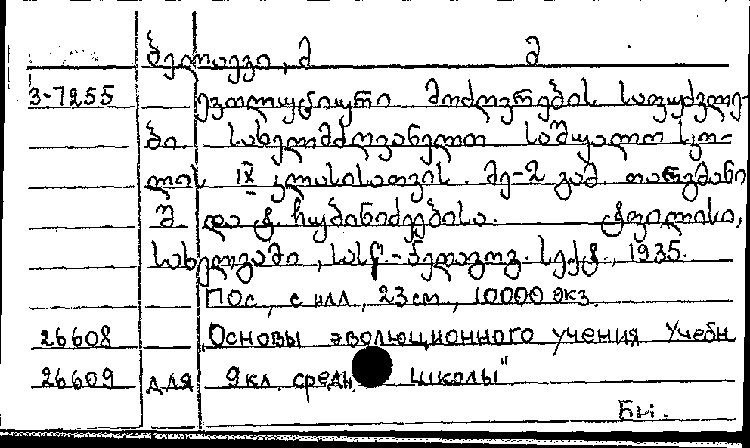 ბელიაევი, მ მ
3-7255 ევოლუციური მოძღვრების საფუძვლე-
ბი. სახელმძღვანელო საშუალო სკო-
ლის IX კლასისათვის. მე-2 გამ. თარგმანი
შ. და ტ. ჩუბინიძეებისა. ტფილისი,
სახელგამი, სას.-პედაგოგ. სექტ., 1935.
ПОс, с илл, 23 см, 10000 экз.
26608 Основы эволюционного учения Учебн
26609 для 9 кл. средн школы"